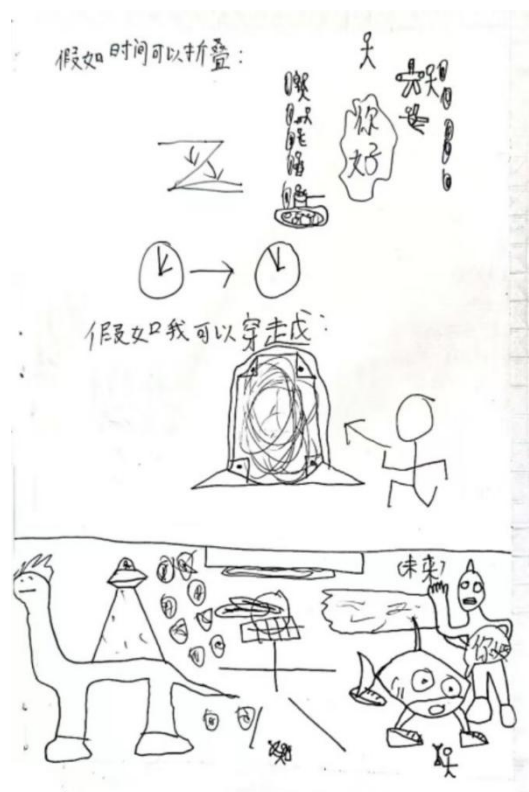 假如时间可以折叠：
你
好
假如我可以穿越：
(未来)